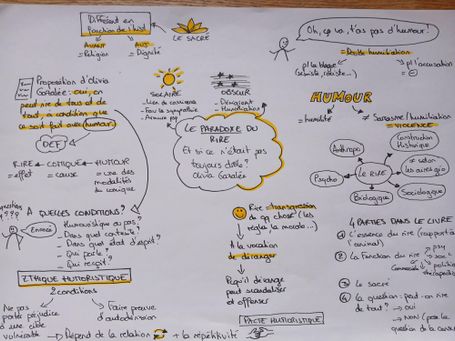 Différent en
fonction de l'hist
AVANT
= Religion
AUJ
= Dignité
LE SACRÉ
Oh, ça va, t'as pas d'humour!
= Double humiliation
p/ la blague
(sexiste, raciste...)
p/ l'accusation
Proposition d'Olivia
Gazalée: oui, on
peut rire de tous et de
tout, à condition que
ce soit fait avec humour
SOLAIRE
- Lien de
- Fou la sympathie
- Armure
OBSCUR
- Dénigrant
- Humiliation
HUMOUR
= humilité
≠ Sarcasme/humiliation
= VIOLENCE
DEF
RIRE
= effet
COMIQUE
= cause
HUMOUR
= une des
modalités
du comique
LE PARADOXE DU
RIRE
Et si ce n'était pas
toujours drôle?
Olivia Gazalée
Anthropo
Construction
Historique
≠ selon
Psycho
LE RIRE
Biologique
Sociologique
question
????
Énervé
A QUELLES CONDITIONS?
- Humoristique ou pas?
- Dans quel contexte?
- Dans quel état d'esprit?
- Qui parle?
- Qui reçoit?
Rire = transgression
de qq chose (les
règles, la morale...)
A la vocation
de déranger
Pcq'il dérange
peut scandaliser
et offenser
4 PARTIES DANS LE LIVRE
1 L'essence du rire (rapport à
l'animal)
2 La Fonction du rire
psy
soc
politique
3 Le sacré
4 La question: peut-on rire
de tout?
→ oui
→ NON (
ETHIQUE HUMORISTIQUE
2 conditions
Ne pas
porter préjudice
à une cible
vulnérable
Faire preuve
d'autodérision
Dépend de la relation
+ la répétitivité
PACTE HUMORISTIQUE